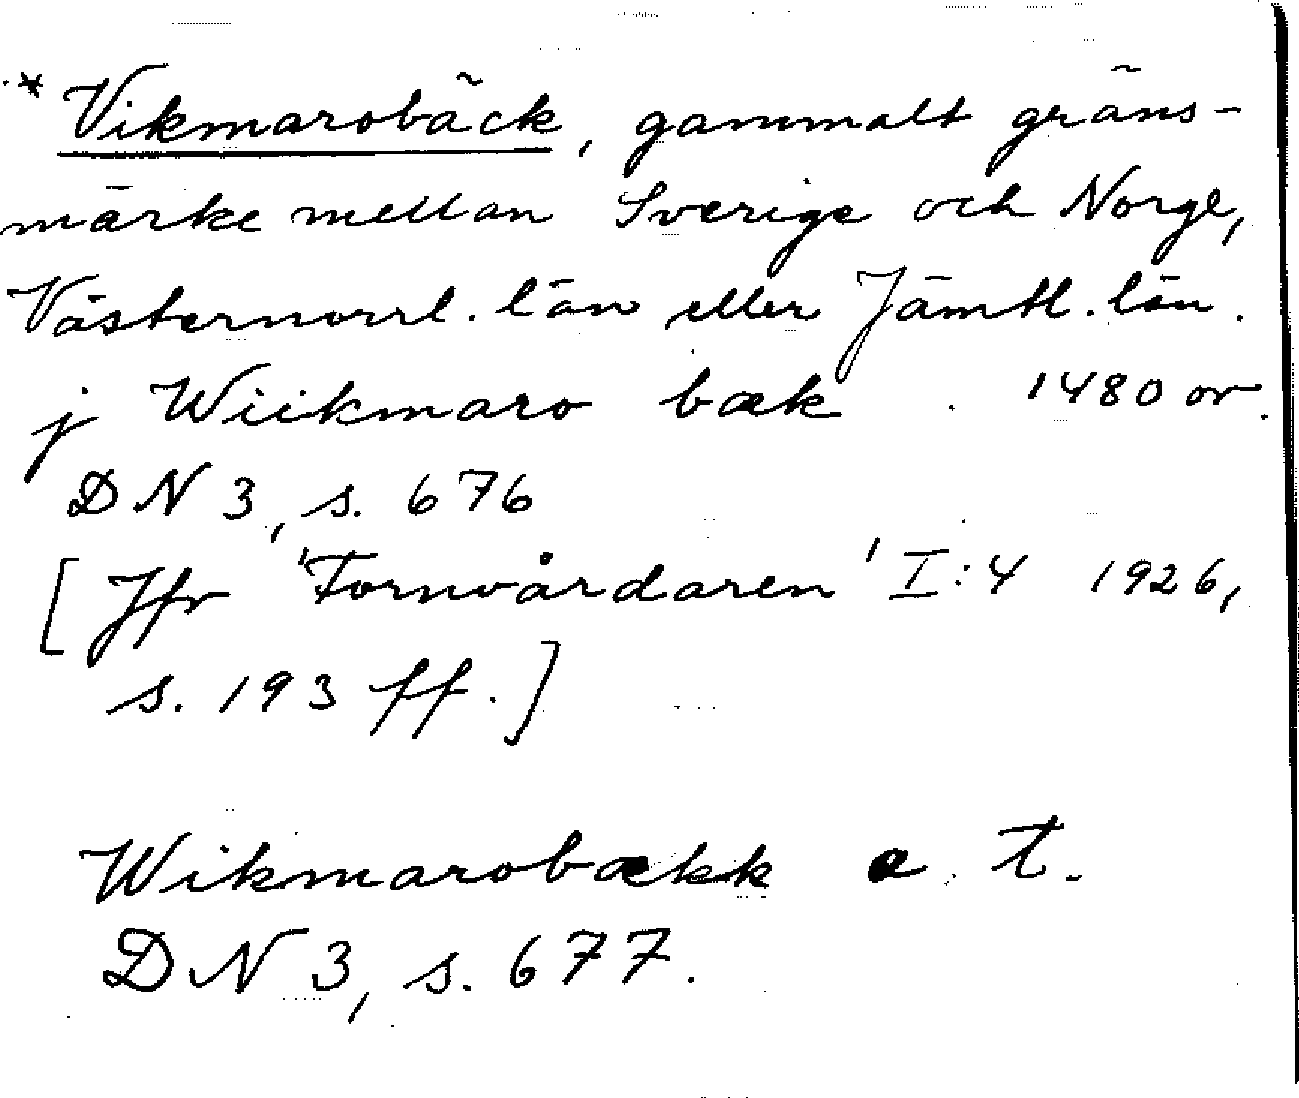 * Vikmarobäck, gammalt gräns-
märke mellan Sverige och Norge,
Västernorrl. län eller Jämtl. län.
j Wiikmaro bæk . 1480 or.
DN 3, s. 676
[Jfr 'Fornvårdaren' I:4 1926,
s. 193 ff.]
Wikmarobækk a. t.
DN 3, s. 677.